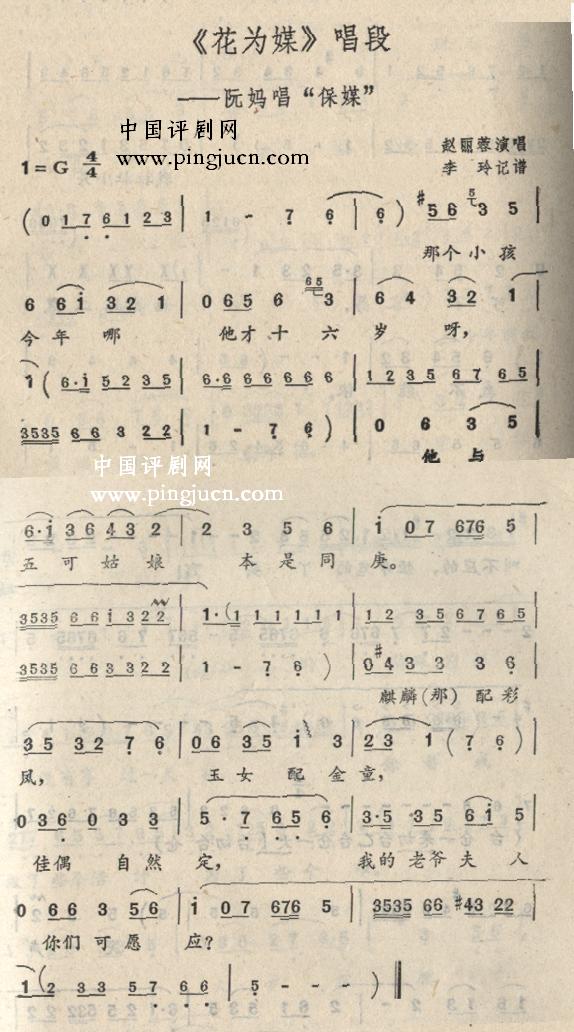 《花为媒》唱段
——阮妈唱“保媒”
中国评剧网
www.pingjucn.com
赵丽蓉演唱
李 玲记谱
1=G 4/4
( 0 1 7 6 1 2 3 | 1 - 7 6 | 6 ) #5 6 3 5 |
那个小孩
6 6 i 3 2 1 | 0 6 5 6 3 | 6 4 3 2 1 |
今年哪 他才十六岁呀,
1 ( 6·i 5 2 3 5 | 6·6 6 6 6 6 6 | 1 2 3 5 6 7 6 5 |
3535 6 6 3 2 2 | 1 - 7 6 ) | 0 6 3 5 |
他与
中国评剧网
www.pingjucn.com
6·i 3 6 4 3 2 | 2 3 5 6 | i 0 7 676 5 |
五可姑娘 本是同庚。
3535 6 6 i 3 2 2 | 1·( 1 1 1 1 1 1 | 1 2 3 5 6 7 6 5 |
3535 6 6 3 3 2 2 | 1 - 7 6 ) | 0 #4 3 3 3 6 |
麒麟(那)配彩
3 5 3 2 7 6 | 0 6 3 5 i 3 | 2 3 1 ( 7 6 ) |
凤, 玉女配金童,
0 3 6 0 3 3 | 5 · 7 6 5 6 | 3·5 3 5 6 i 5 |
佳偶自然定, 我的老爷夫人
0 6 6 3 5 6 | i 0 7 676 5 | 3535 66 #43 22 |
你们可愿应?
1 ( 2 3 3 5 7 6 6 | 5 - - - ) ‖